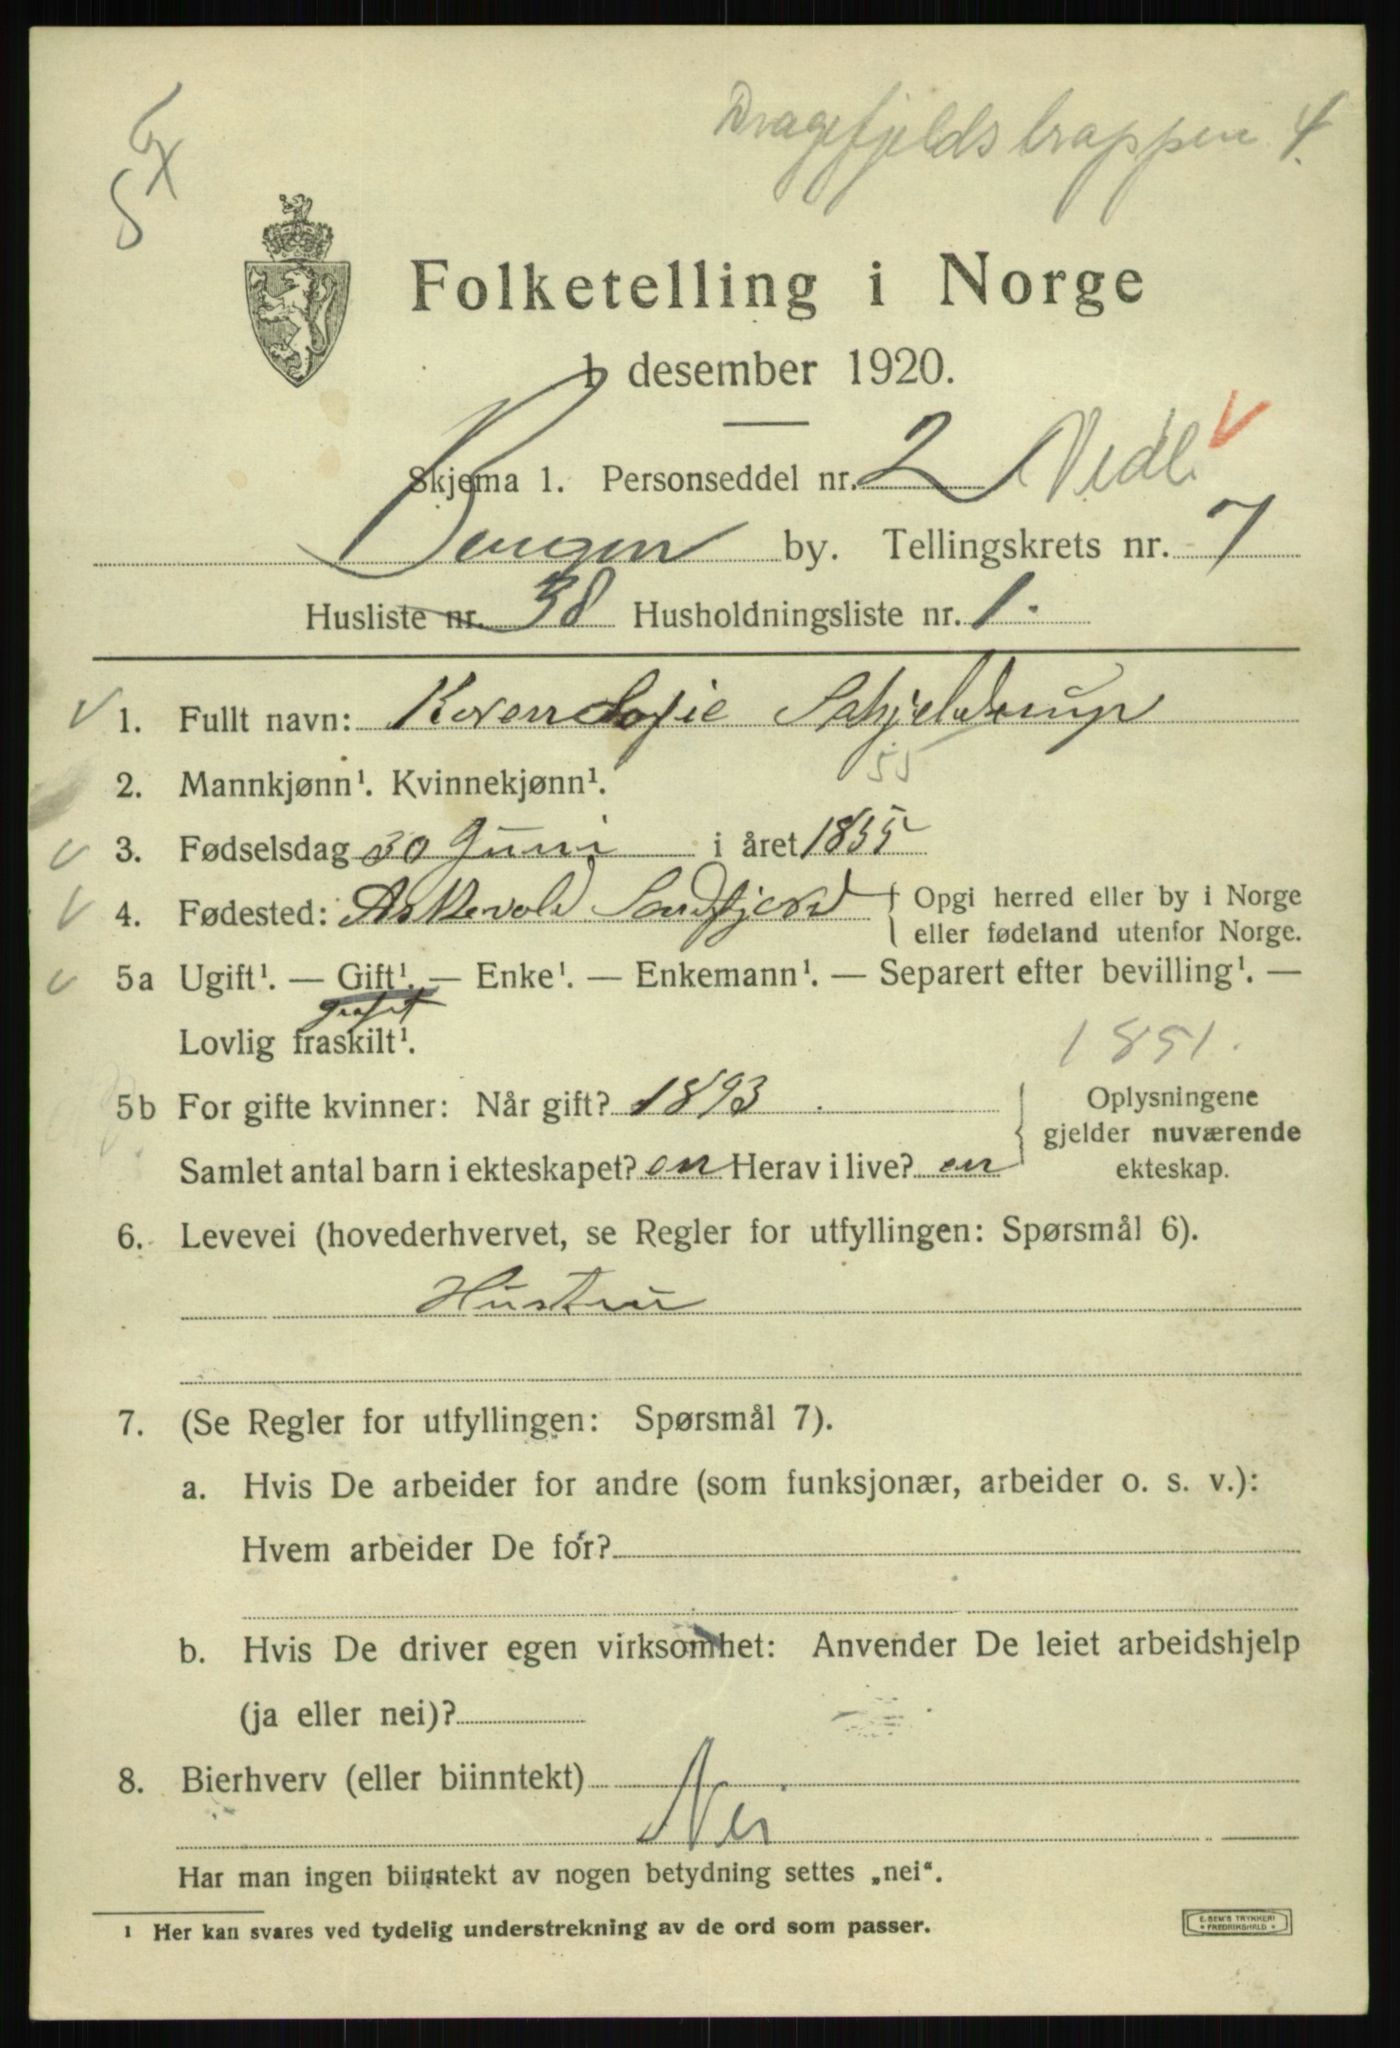 Dragefjeldstrappen 4.
Folketelling i Norge
1 desember 1920.
Skjema 1. Personseddel nr. 2 Nedl.
Bergen by. Tellingskrets nr. 7
Husliste nr. 38 Husholdningsliste nr. 1.
1. Fullt navn: Karen Sofie Schjelderup
2. Mannkjønn¹. Kvinnekjønn¹. 55
3. Fødselsdag 30 Juni i året 1855
4. Fødested: Askevold Søndfjord { Opgi herred eller by i Norge
eller fødeland utenfor Norge.
5a Ugift¹. — Gift¹. — Enke¹. — Enkemann¹. — Separert efter bevilling¹. —
Lovlig fraskilt¹.
1891.
5b For gifte kvinner: Når gift? 1893 Oplysningene
gjelder nuværende
Samlet antal barn i ekteskapet? en Herav i live? en ekteskap.
6. Levevei (hovederhvervet, se Regler for utfyllingen: Spørsmål 6).
Hustru
7. (Se Regler for utfyllingen: Spørsmål 7).
a. Hvis De arbeider for andre (som funksjonær, arbeider o. s. v.):
Hvem arbeider De for?
b. Hvis De driver egen virksomhet: Anvender De leiet arbeidshjelp
(ja eller nei)?
8. Bierhverv (eller biinntekt)
Nei
Har man ingen biinntekt av nogen betydning settes „nei“.
¹ Her kan svares ved tydelig understrekning av de ord som passer.
E. SEM'S TRYKKERI
FREDRIKSHALD